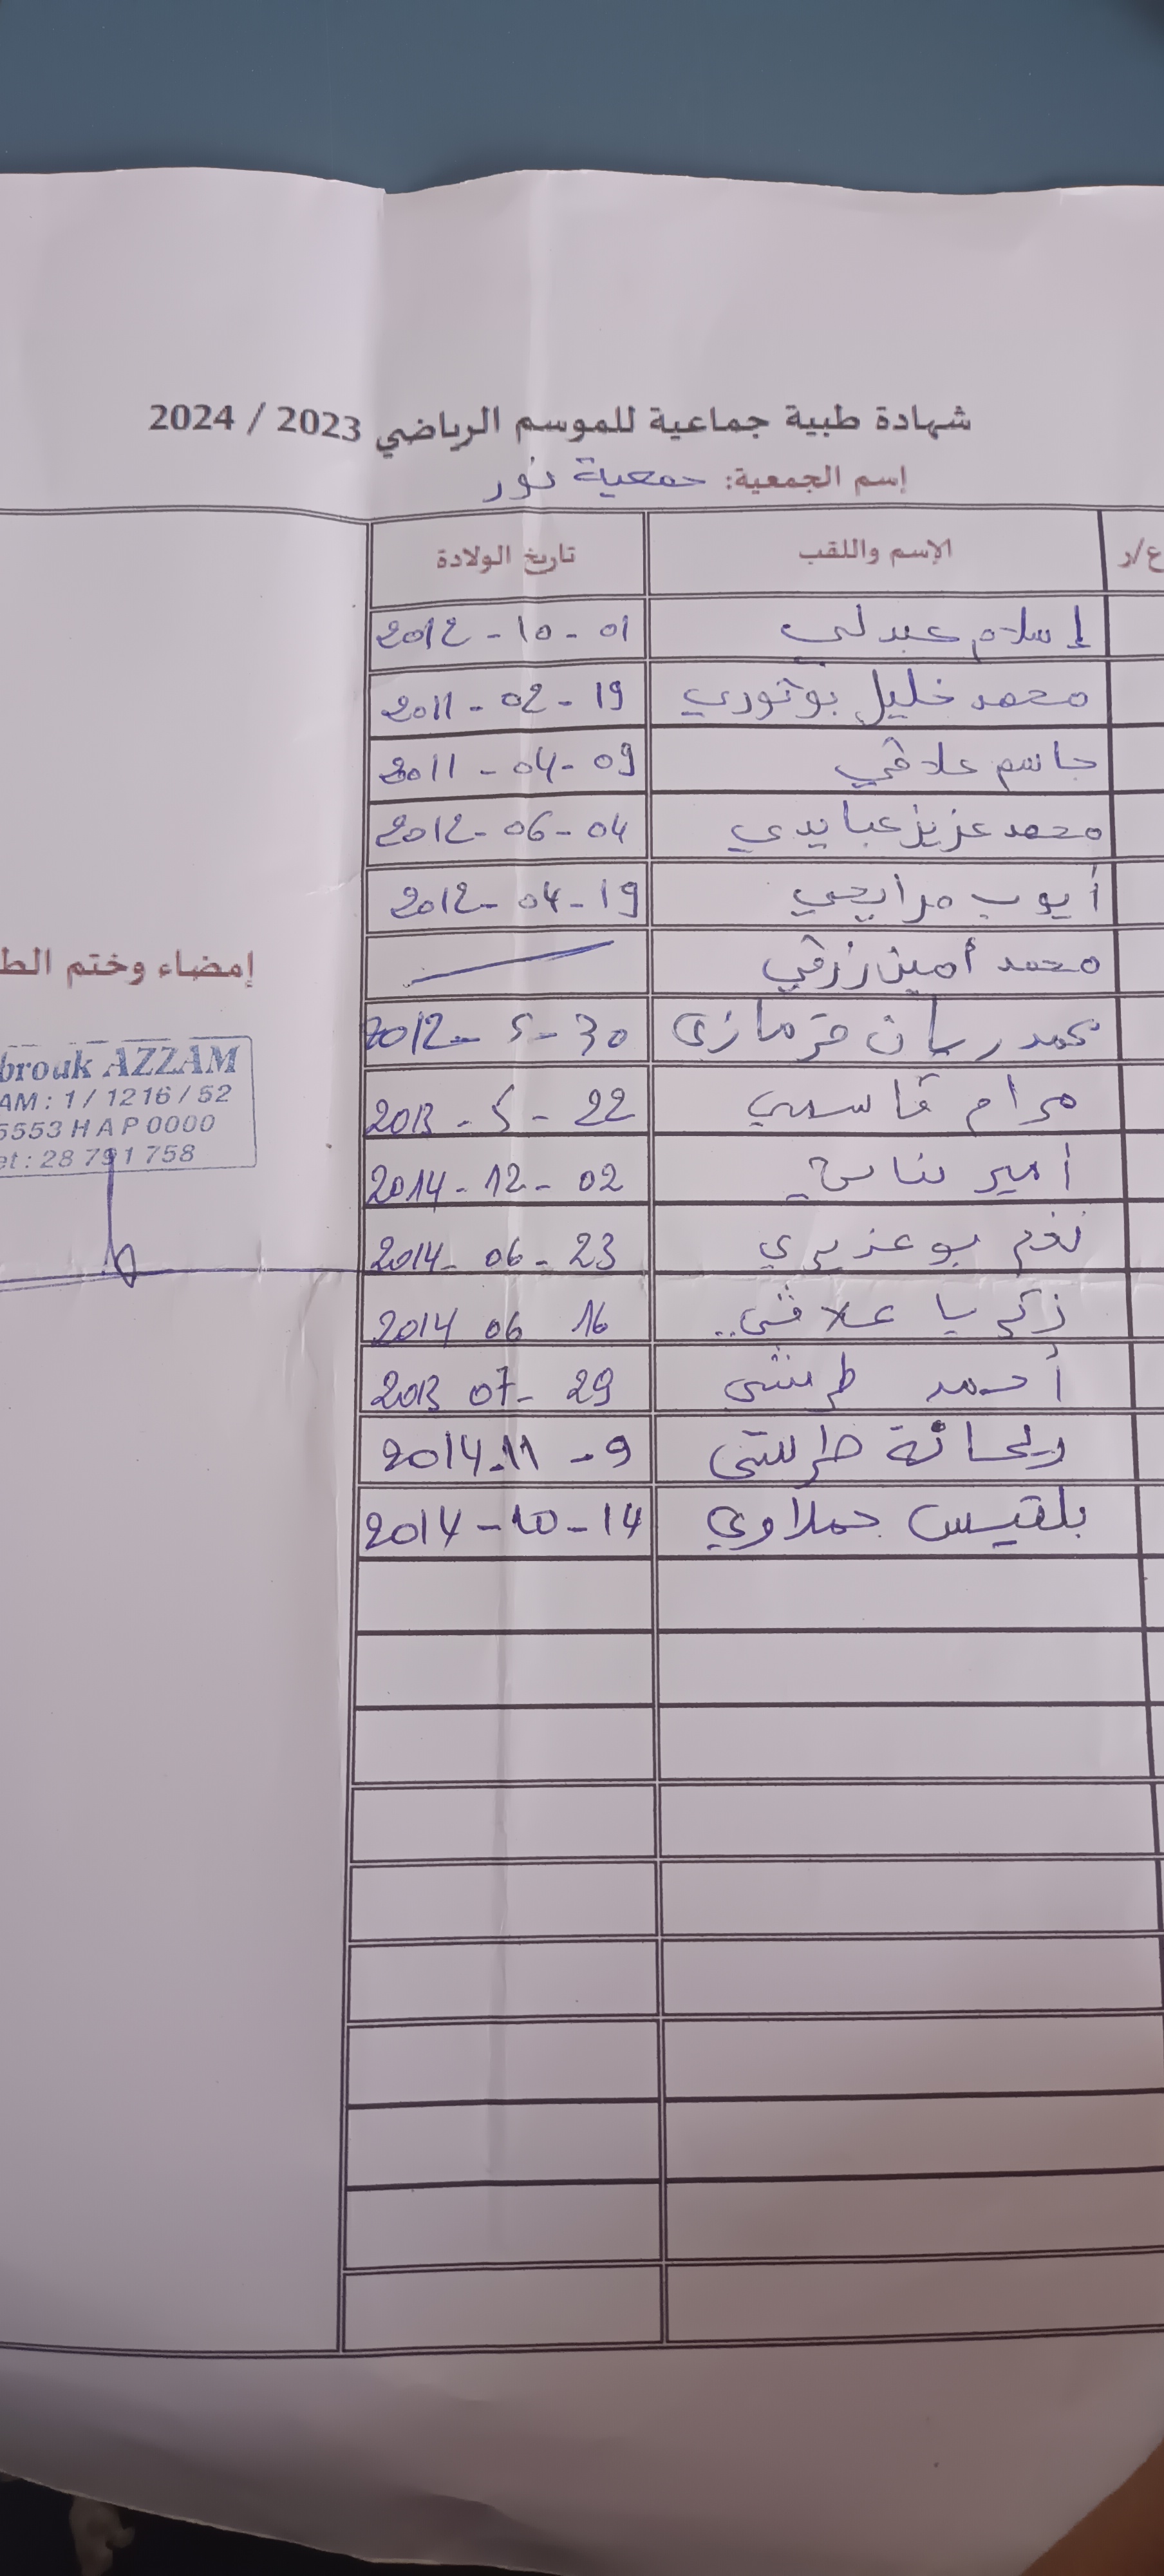 شهادة طبية جماعية للموسم الرياضي 2023 / 2024
إسم الجمعية: جمعية نور
ع/ر الإسم واللقب تاريخ الولادة
إسلام عبدلي 2012 - 10 - 01
محمد خليل بوثوري 2011 - 02 - 19
جاسم علاقي 2011 - 04 - 09
محمد عزيز عبايدي 2012 - 06 - 04
أيوب مرايحي 2012 - 04 - 19
محمد أمين زرقي
محمد ريان قرمازي 2012 - 5 - 30
مرام قاسمي 2013 - 5 - 22
أمير 2014 - 12 - 02
نغم بوعزيزي 2014 - 06 - 23
زكريا علاقي 2014 06 16
أحمد طرشي 2013 07 - 29
ريحانة طرشي 2014.11 - 9
بلقيس حملاوي 2014 - 10 - 14
إمضاء وختم الط
brouk AZZAM
AM : 1 / 1216 / 52
5553 H A P 0000
et : 28 791 758